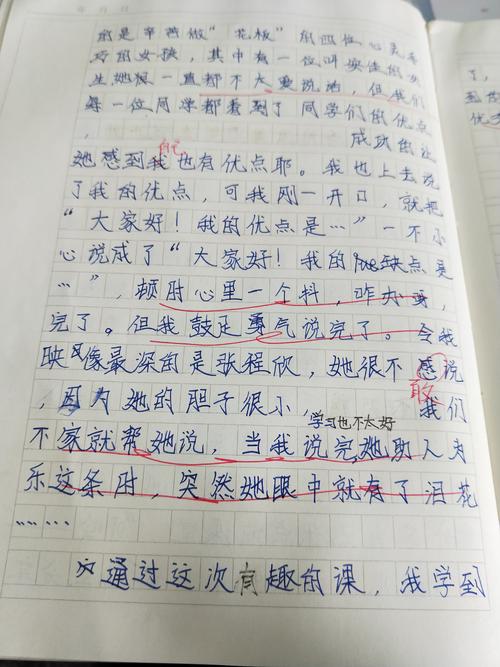 的是辛燕做“花板”的四位心灵手
巧的女孩，其中有一位叫安佳的女
生她根一直都不太爱说话，但我们
每一位同学都看到了同学们的优点
， 成功的让
她感到我也有优点耶。我也上去说
了我的优点，可我刚一开口，就把
“大家好！我的优点是…”一不小
心说成了“大家好！我的缺点是
…”，顿时心里一个抖，咋办呀，
完了。但我鼓足勇气说完了。令我
映像最深的是张程欣，她很不感说
敢
，因为她的胆子很小， 我们
学习也不太好
不家就帮她说，当我说完她助人为
乐这条时，突然她眼中就有了泪花
……
通过这次有趣的课，我学到
了，
到的
优点